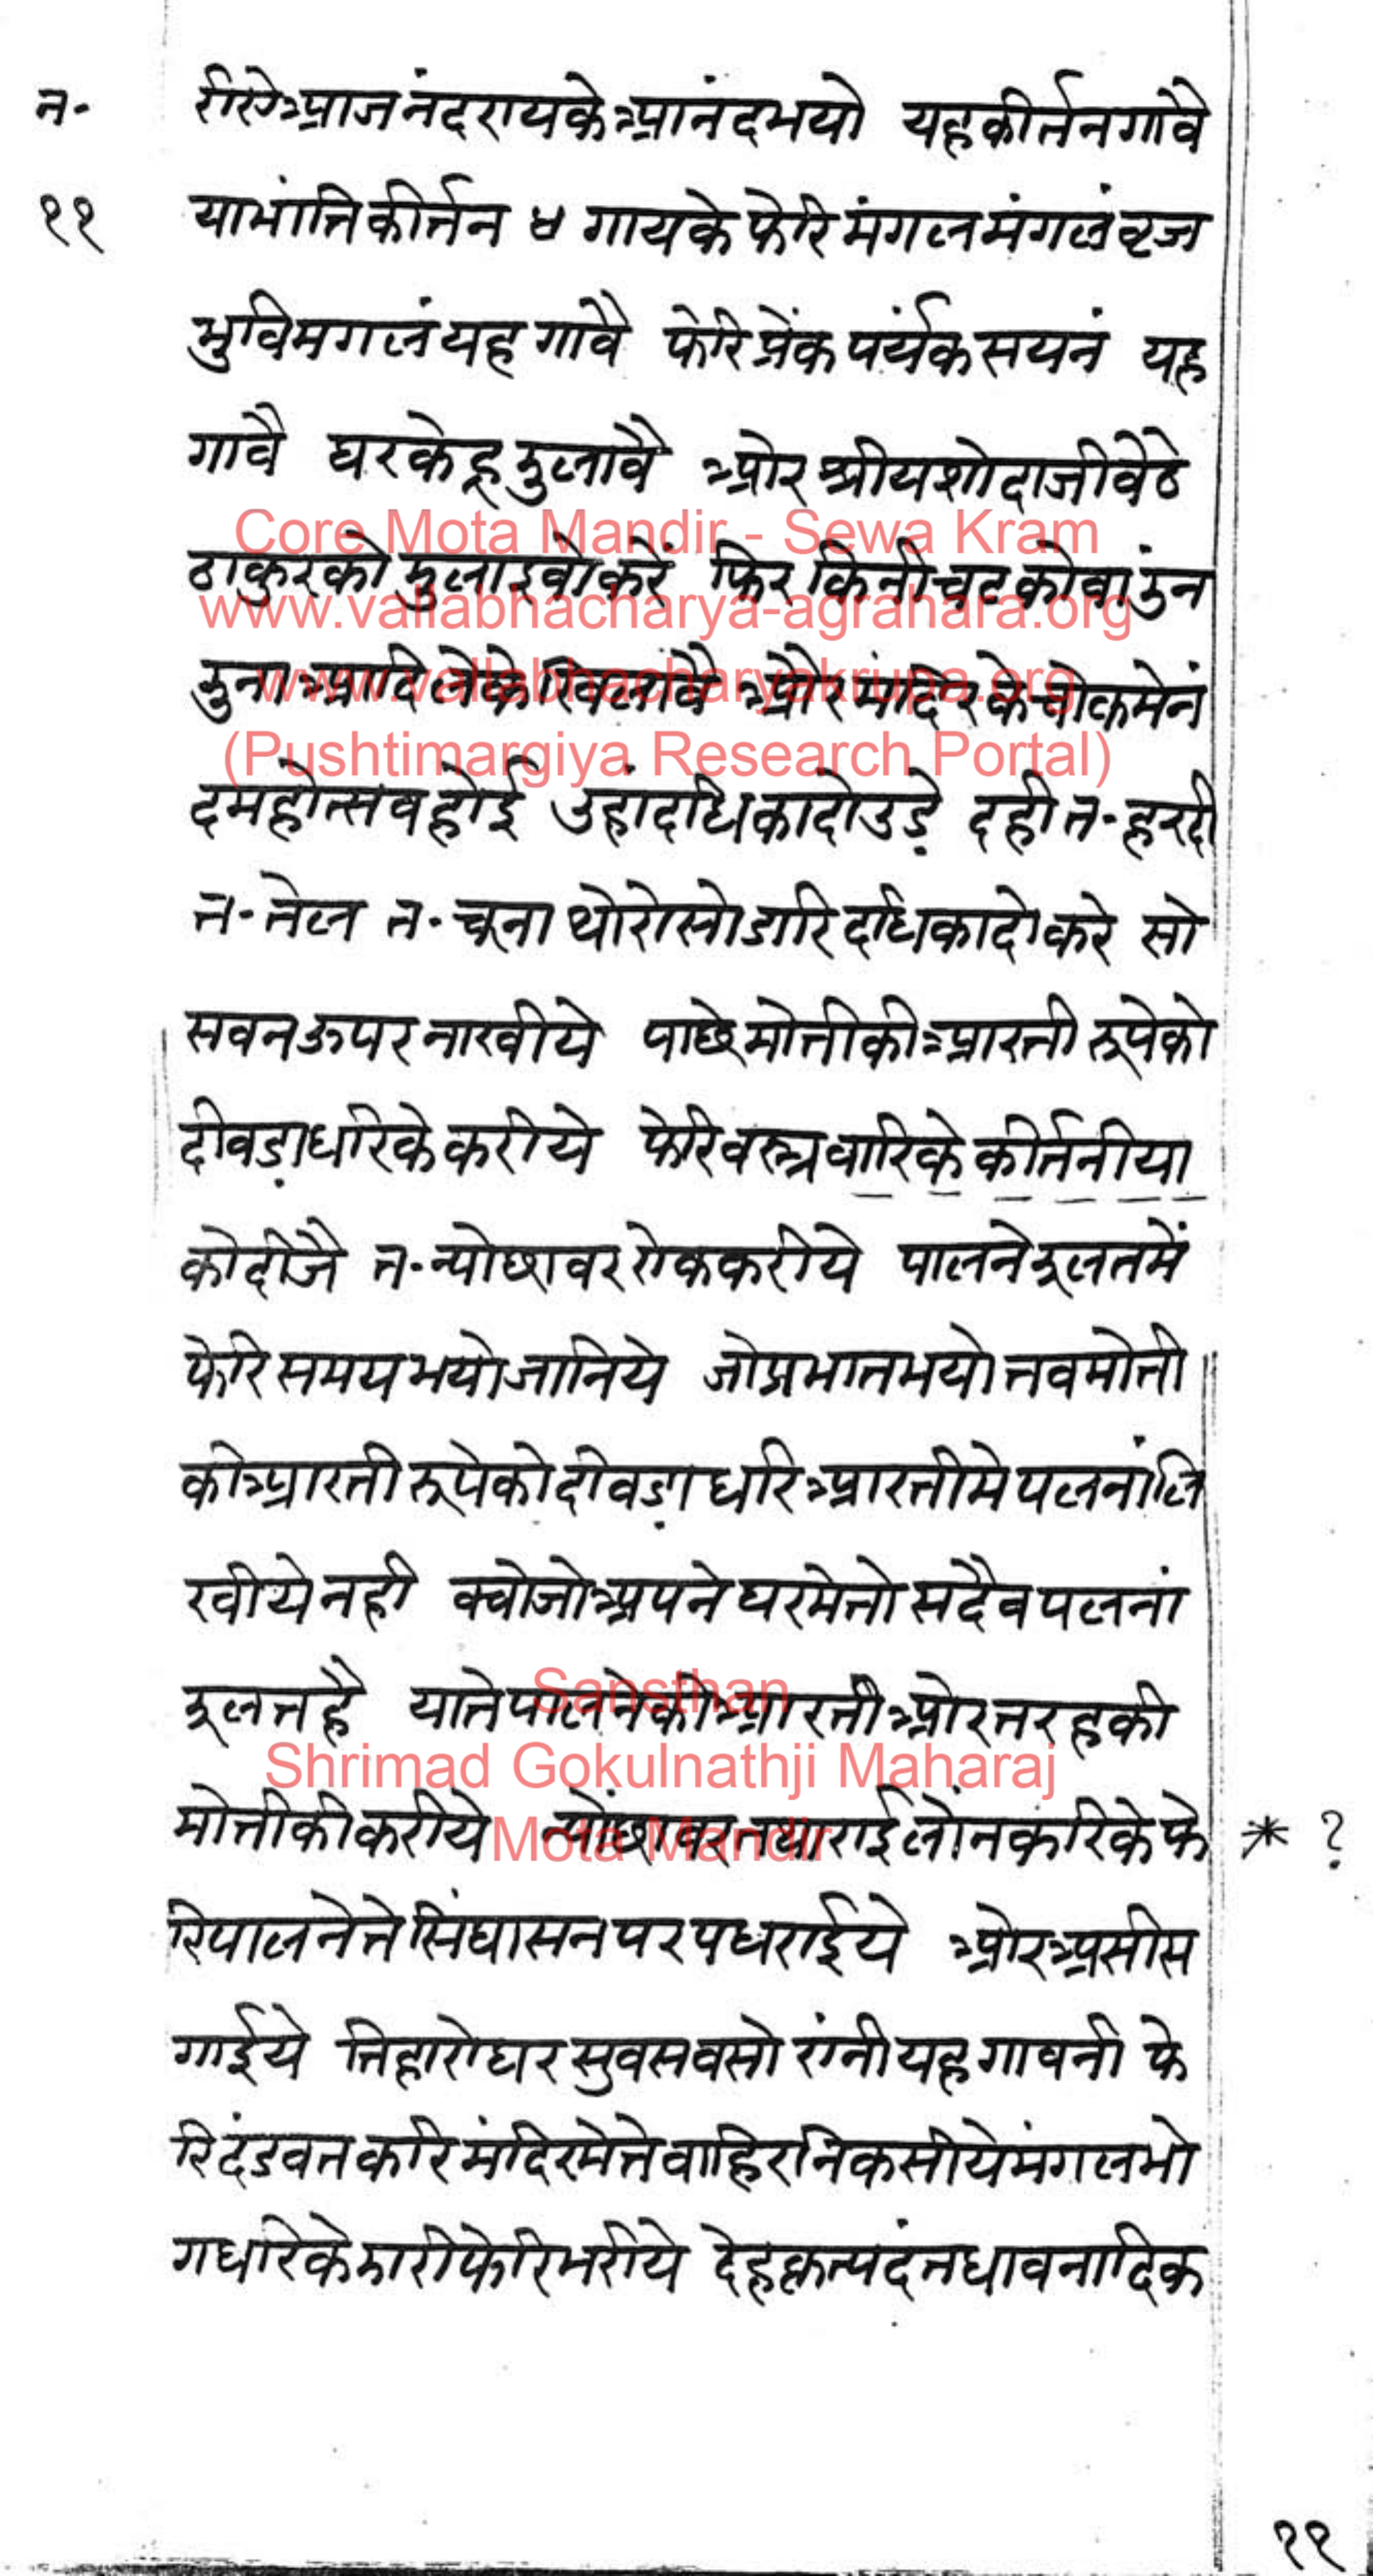 न॰
११
रीसो आज नंदरायके आनंदभयो यहकीर्तनगावै
याभांतिकीर्त्तन ४ गायके फेरि मंगलमंगलं व्रज
भुविमगलं यह गावै फेरि प्रेंकपर्यंकसयनं यह
गावै घरकेहू झुलावै ओर श्रीयशोदाजीवैठे
ठाकुरको झुलाइवो करें फिरकिनी चटकोवा झुन
झुना आदि लेके खिलावै और मंदिरकेचोकमेनं
दमहोत्सवहोई उहां दधिकादो उडे़ दही त॰ हरदी
त॰ तेल त॰ चूना थोरोसो डारि दधिकादो करे सो
सवनऊपर नाखीये पाछे मोतीकी आरती रूपेको
दीवडा़धरिके करीये फेरि वस्त्रवारिके कीर्तनीया
कोदीजै त॰ न्योछावर रोककरीये पालनेझूलतमें
फेरि समयभयोजानिये जोप्रभातभयो तवमोती
कीआरती रूपेको दीवडा़ धरि आरतीमे पलनांलि
खीये नही क्योजो अपने घरमेतो सदैव पलनां
झूलतहै याते पालनेकी आरती ओरतरहकी
मोतीकीकरीये न्योंछावर तथा राईलोंनकरिके फे
* ?
रिपालनेते सिंघासनपर पधराईये ओर असीस
गाईये तिहारो घर सुवसवसो रांनी यह गावनी फे
रि दंडवतकरि मंदिरमेते वाहिर निकसीये मंगलभो
गधरिके झारीफेरिभरीये देहकृत्यदंतधावनादिक
११
Core Mota Mandir - Sewa Kram
www.vallabhacharya-agrahara.org
www.vallabhacharyakrupa.org
(Pushtimargiya Research Portal)
Sansthan
Shrimad Gokulnathji Maharaj
Mota Mandir